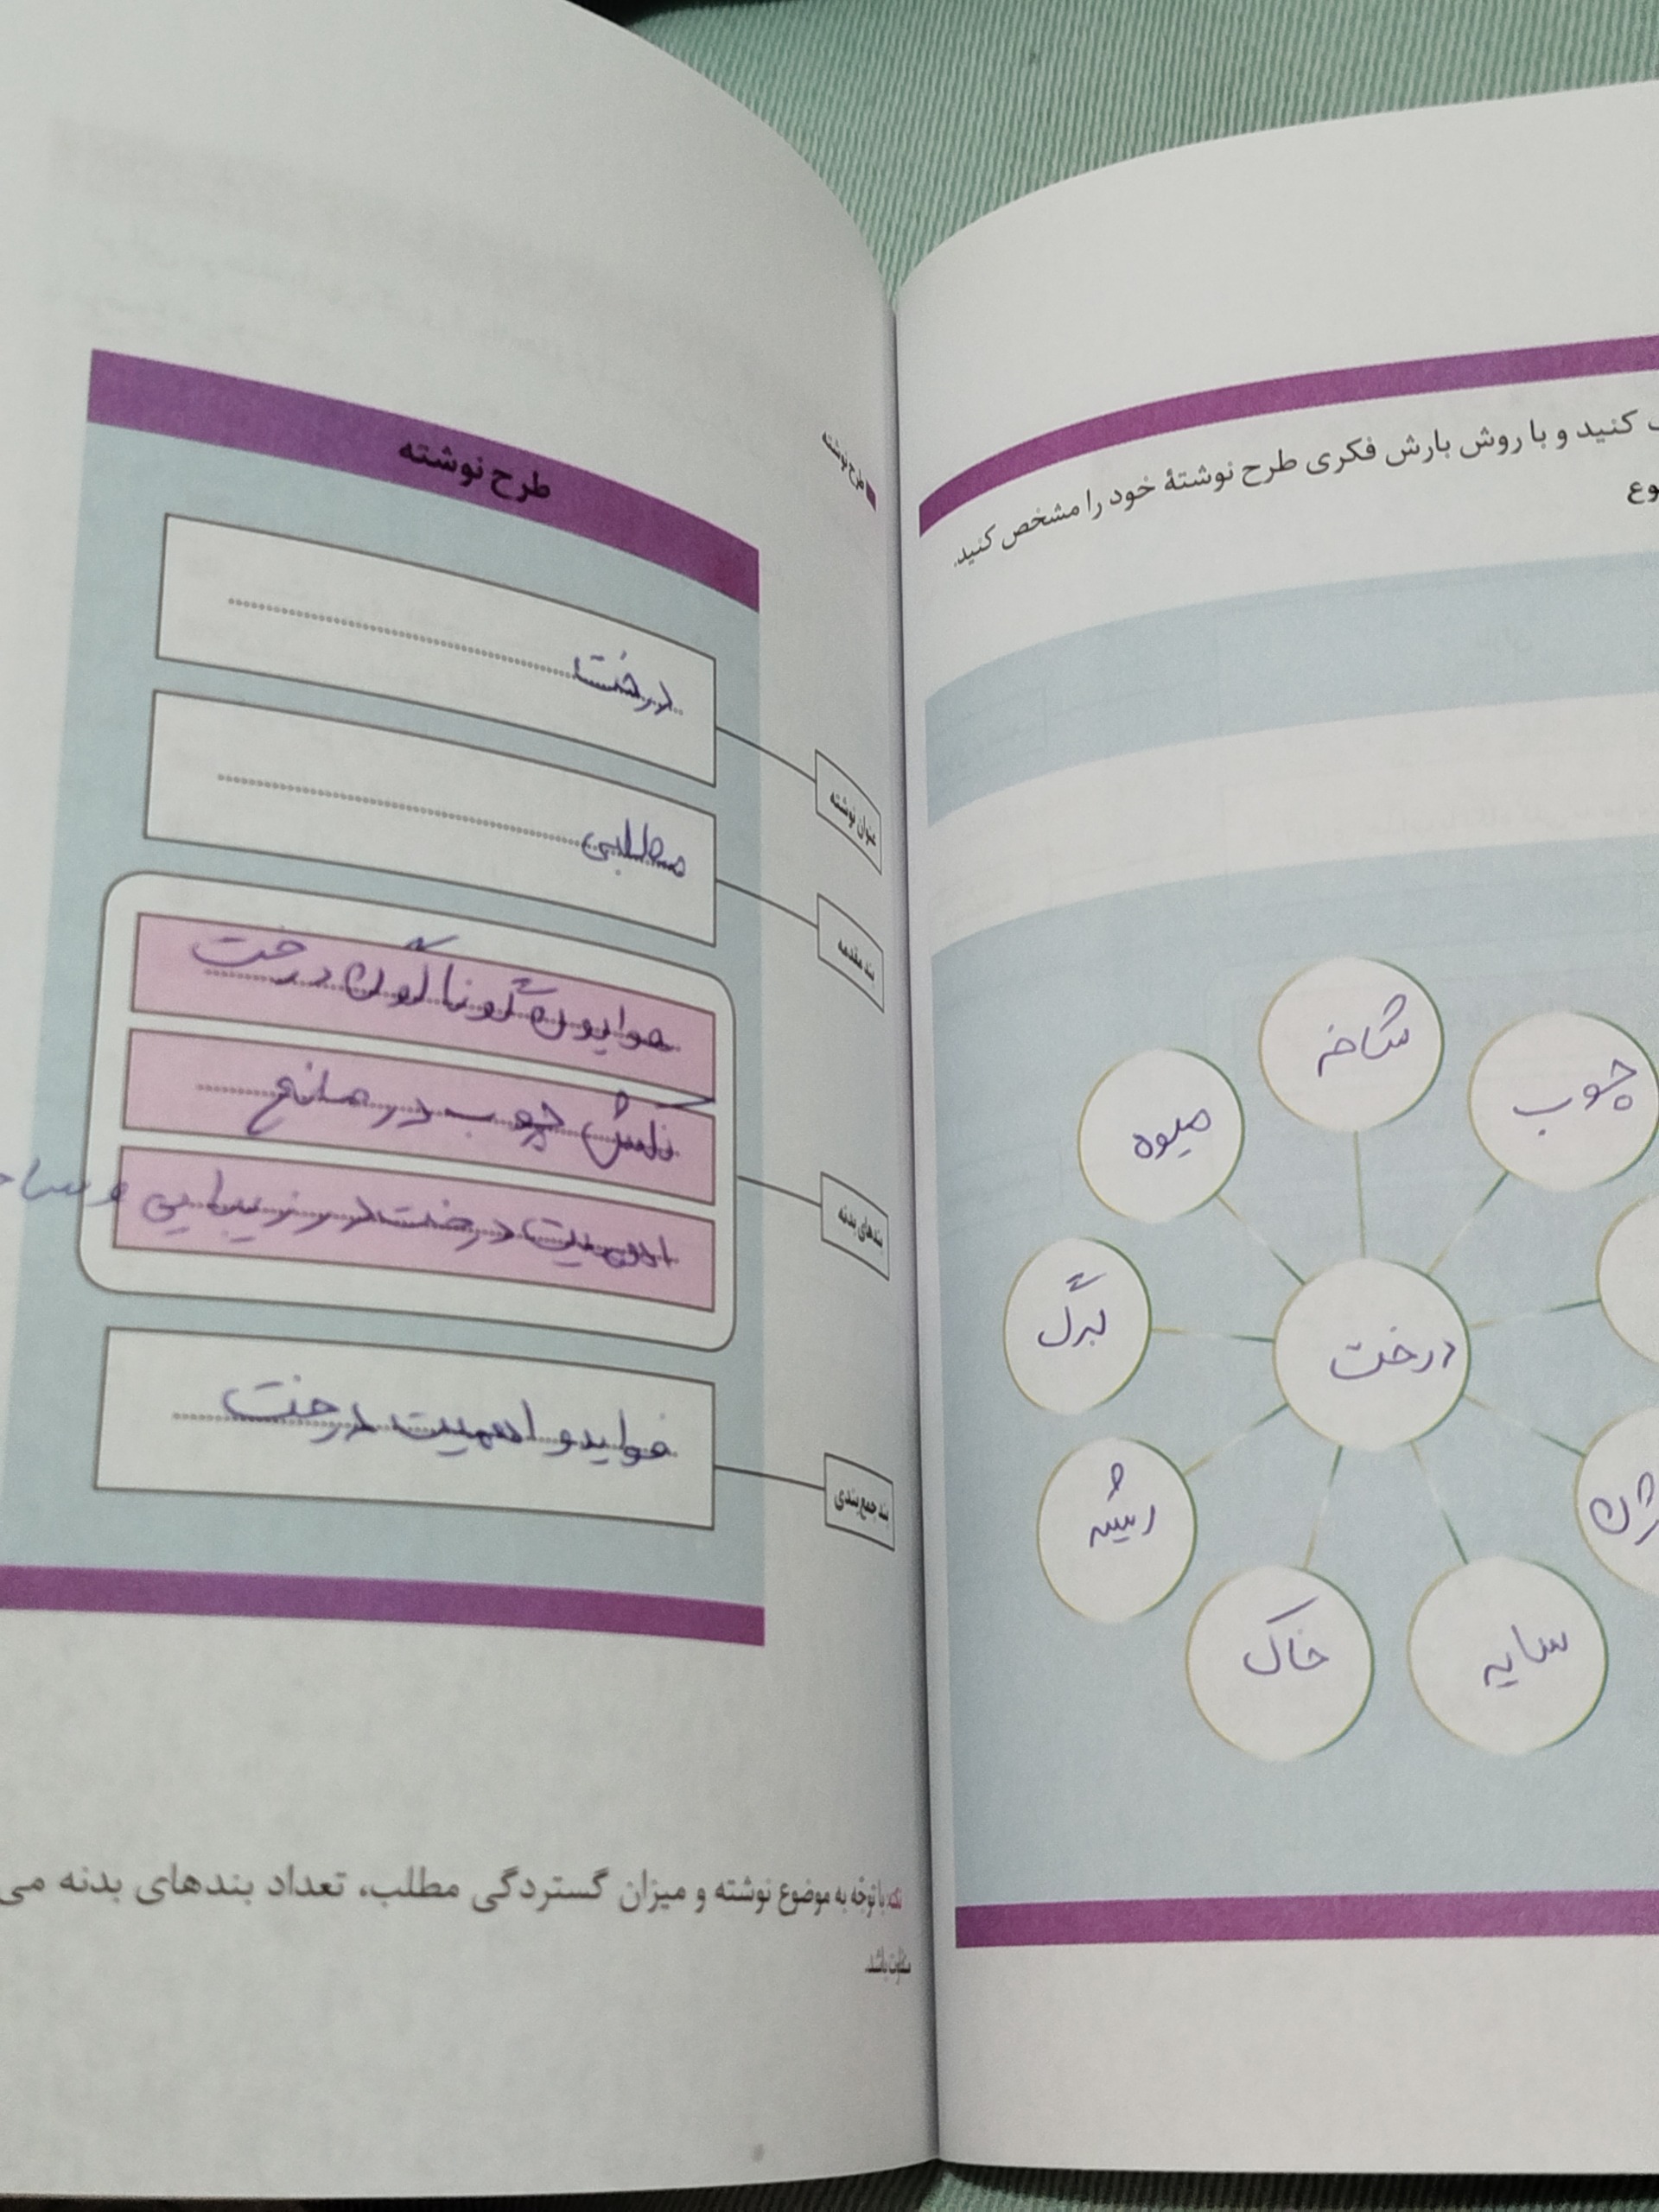 کنید و با روش بارش فکری طرح نوشتهٔ خود را مشخص کنید.
شاخه
چوب
میوه
برگ
درخت
ریشه
خاک
سایه
طرح نوشته
طرح نوشته
عنوان نوشته
درخت
بند مقدمه
مطلبی
بندهای بدنه
فوایون گوناگون درخت
نقش چوب در صنایع
اهمیت درخت در زیبایی و
بند جمع‌بندی
فواید و اهمیت درخت
نکته: با توجّه به موضوع نوشته و میزان گستردگی مطلب، تعداد بندهای بدنه می
متفاوت باشد.